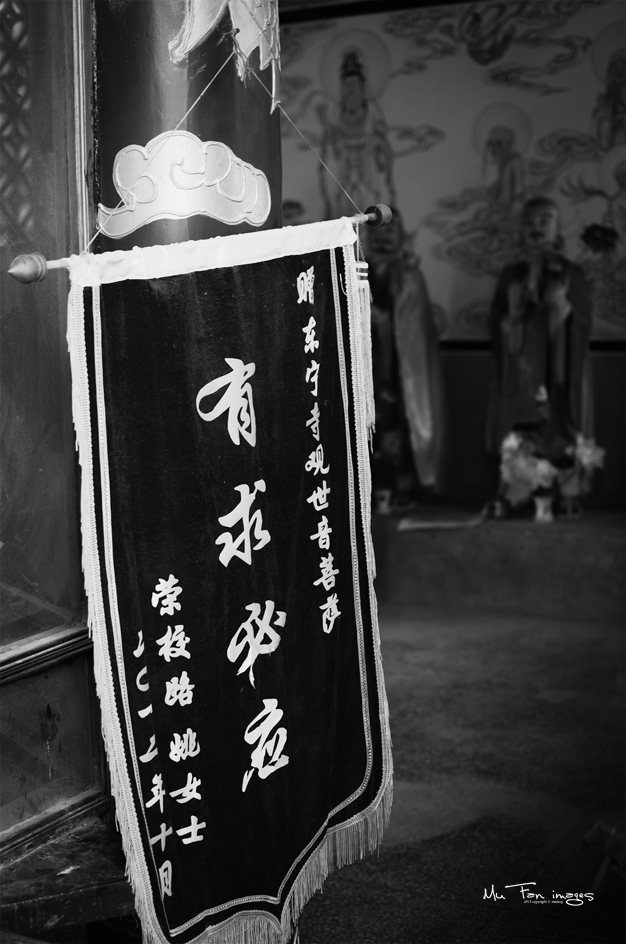 赠东宁寺观世音菩萨
有求必应
荣校路 姚女士
二〇一二年十月
Mu Fan images